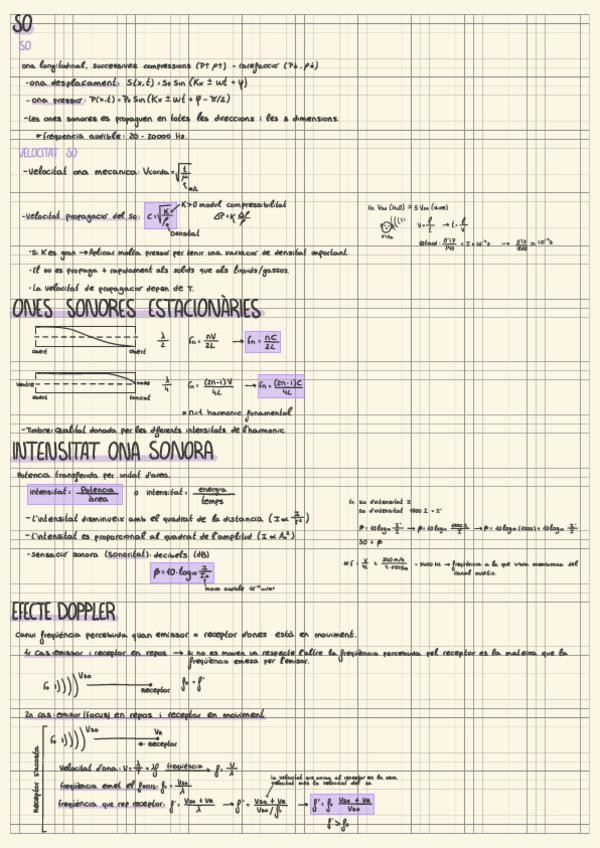 SO
SO
ona longitudinal, successives compressions (P↑ ρ↑) - rarefacció (P↓, ρ↓)
- ona desplaçament: S(x,t) = S₀ Sin (Kx ± ωt + φ)
- ona pressió: P(x,t) = P₀ Sin (Kx ± ωt + φ - π/2)
- Les ones sonores es propaguen en totes les direccions i les 3 dimensions.
* Freqüència audible: 20 - 20000 Hz.
VELOCITAT SO
- Velocitat ona mecanica: Vcorda = √(t/μ)
m/L
- Velocitat propagació del so: C = √(K/ρ) K>0 modul compressibilitat
Densitat
· Si K és gran → Aplicar molta pressió per tenir una variació de densitat important.
· El so es propaga + rapidament als solids que als líquids/gassos.
· La velocitat de propagació depen de T.
ONES SONORES ESTACIONÀRIES
obert obert λ/2 fn = nV/2L → fn = nC/2L
ventre node λ/4 fn = (2n-1)V/4L → fn = (2n-1)C/4L
obert tancat
* n=1 harmonic fonamental
- Timbre: Qualitat donada per les diferents intensitats de l'harmonic
INTENSITAT ONA SONORA
Potencia transferida per unitat d'area.
intensitat = Potencia/àrea o intensitat = energia/temps
- L'intensitat disminueix amb el quadrat de la distancia (I ∝ 1/r²)
- L'intensitat es proporcional al quadrat de l'amplitud (I ∝ A₀²)
- Sensació sonora (sonoritat): decibels (dB)
β = 10·log₁₀ I/I₀
EFECTE DOPPLER
Canvi freqüència percebuda quan emissor o receptor d'ones està en moviment.
1r cas: emissor i receptor en repos → si no es mouen un respecte l'altre la freqüència percebuda pel receptor es la mateixa que la
freqüència emesa per l'emisor.
f₀ :))))) Vso Receptor f₀ = f'
2n cas: emisor (focus) en repos i receptor en moviment
f₀ :))))) Vso VR
← Receptor
Receptor s'acosta
Velocitat d'ona: V = λ/T = λf freqüència → f = V/λ
freqüència emet el focus: f₀ = Vso/λ
freqüència que rep receptor: f' = Vso + VR/λ → f' = Vso + VR/Vso/f₀ → f' = f₀ Vso + VR/Vso
f' > f₀